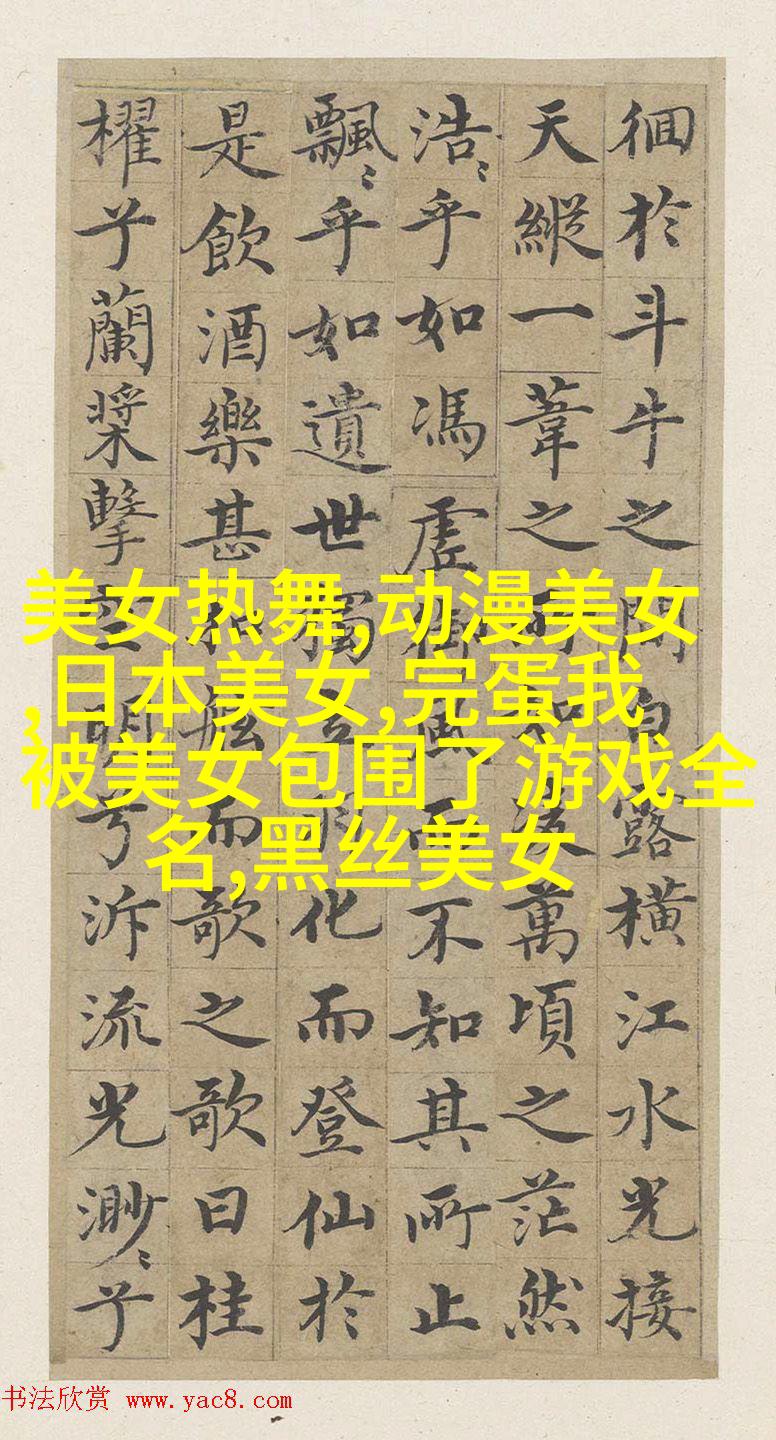 徊於斗牛之間白露橫江水光接
天縱一葦之所如淩萬頃之茫然
浩〻乎如馮虛御風而不知其所止
飄〻乎如遺世獨立羽化而登仙於
是飲酒樂甚扣舷而歌之歌曰桂
櫂兮蘭槳擊空明兮泝流光渺〻兮
美女热舞,动漫美女
,日本美女,完蛋我
被美女包围了游戏全
名,黑丝美女
书法欣赏 www.yac8.com